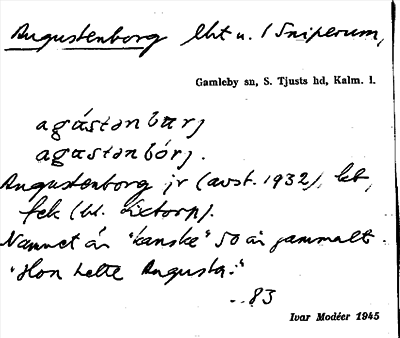 Augustenborg lht u. / Sniperum,
Gamleby sn, S. Tjusts hd, Kalm. l.
agástənbarj
agastənbórj.
Augustenborg jr (avst. 1932), kt,
fek (bl. Lixtorp).
Namnet är "kanske" 50 år gammalt.
"Hon hette Augusta."
83
Ivar Modéer 1945